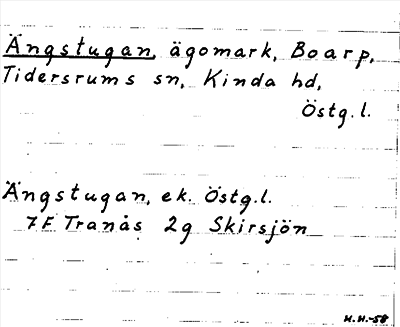 Ängstugan, ägomark, Boarp,
Tidersrums sn, Kinda hd,
Östg.l.
Ängstugan, ek. Östg.l.
7F Tranås 2g Skirsjön
H.H.-58